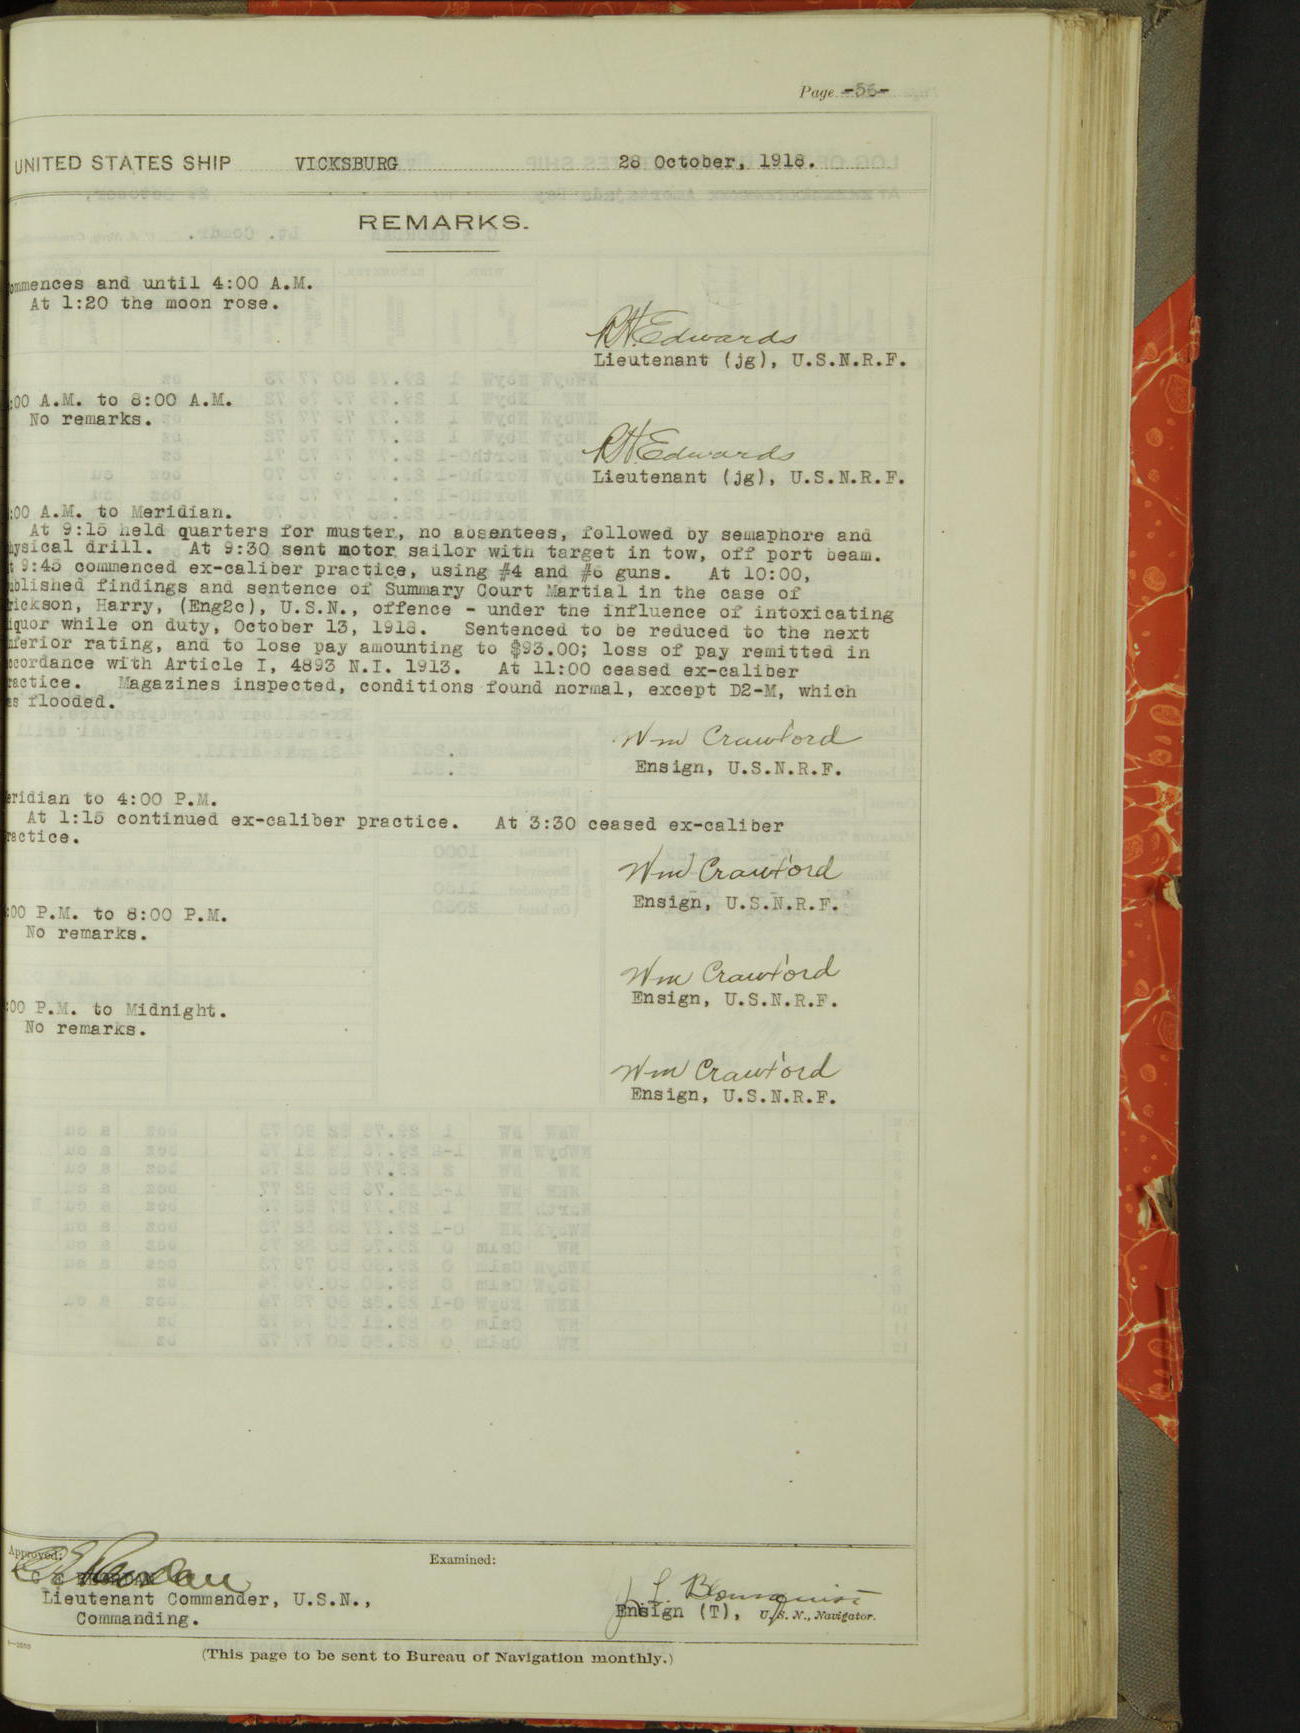 Page -56-
UNITED STATES SHIP VICKSBURG 28 October, 1918.
REMARKS.
ommences and until 4:00 A.M.
At 1:20 the moon rose.
RH Edwards
Lieutenant (jg), U.S.N.R.F.
:00 A.M. to 8:00 A.M.
No remarks.
RH Edwards
Lieutenant (jg), U.S.N.R.F.
:00 A.M. to Meridian.
At 9:15 held quarters for muster, no absentees, followed by semaphore and
hysical drill. At 9:30 sent motor sailor with target in tow, off port beam.
t 9:45 commenced ex-caliber practice, using #4 and #6 guns. At 10:00,
ublished findings and sentence of Summary Court Martial in the case of
rickson, Harry, (Eng2c), U.S.N., offence - under the influence of intoxicating
iquor while on duty, October 13, 1918. Sentenced to be reduced to the next
nferior rating, and to lose pay amounting to $93.00; loss of pay remitted in
ccordance with Article I, 4893 N.I. 1913. At 11:00 ceased ex-caliber
ractice. Magazines inspected, conditions found normal, except D2-M, which
as flooded.
Wm Crawford
Ensign, U.S.N.R.F.
eridian to 4:00 P.M.
At 1:15 continued ex-caliber practice. At 3:30 ceased ex-caliber
ractice.
Wm Crawford
Ensign, U.S.N.R.F.
:00 P.M. to 8:00 P.M.
No remarks.
Wm Crawford
Ensign, U.S.N.R.F.
:00 P.M. to Midnight.
No remarks.
Wm Crawford
Ensign, U.S.N.R.F.
Approved: Examined:
Lieutenant Commander, U.S.N.,
Commanding.
Ensign (T), U.S.N., Navigator.
(This page to be sent to Bureau of Navigation monthly.)